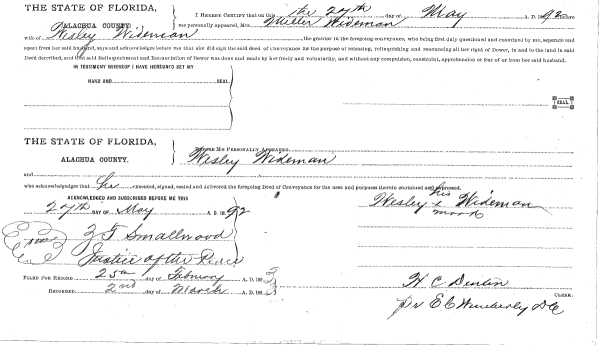 THE STATE OF FLORIDA,
ALACHUA COUNTY.
I HEREBY CERTIFY that on this the 27th day of May A. D. 1892 before
me personally appeared, Mrs. Wideman
wife of Wesley Wideman the grantor in the foregoing conveyance, who being first duly questioned and examined by me, separate and
apart from her said husband, says and acknowledges before me that she did sign the said deed of Conveyance for the purpose of releasing, relinquishing and renouncing all her right of Dower, in and to the land in said
Deed described, and that said Relinquishment and Renunciation of Dower was done and made by her freely and voluntarily, and without any compulsion, constraint, apprehension or fear of or from her said husband.
IN TESTIMONY WHEREOF I HAVE HEREUNTO SET MY
HAND AND SEAL
SEAL
THE STATE OF FLORIDA,
ALACHUA COUNTY.
BEFORE ME PERSONALLY APPEARED
Wesley Wideman
and
who acknowledges that he executed, signed, sealed and delivered the foregoing Deed of Conveyance for the uses and purposes therein contained and expressed.
ACKNOWLEDGED AND SUBSCRIBED BEFORE ME THIS
27th DAY OF May A. D. 1892
his
Wesley x Wideman
mark
Z T Smallwood
Justice of the Peace
FILED FOR RECORD 25th day of February A. D. 1893
RECORDED 2nd day of March A. D. 1893
H C Denton
CLERK.
pr E C Wimberly D C